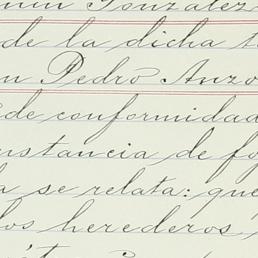 González
de la dicha
Pedro Anzo
de conformidad
nstancia de fo
a se relata: que
los herederos